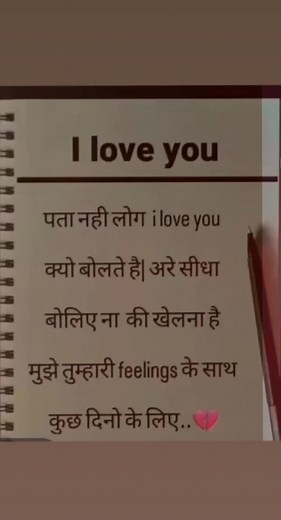 I love you
पता नही लोग i love you
क्यो बोलते है| अरे सीधा
बोलिए ना की खेलना है
मुझे तुम्हारी feelings के साथ
कुछ दिनो के लिए..💔